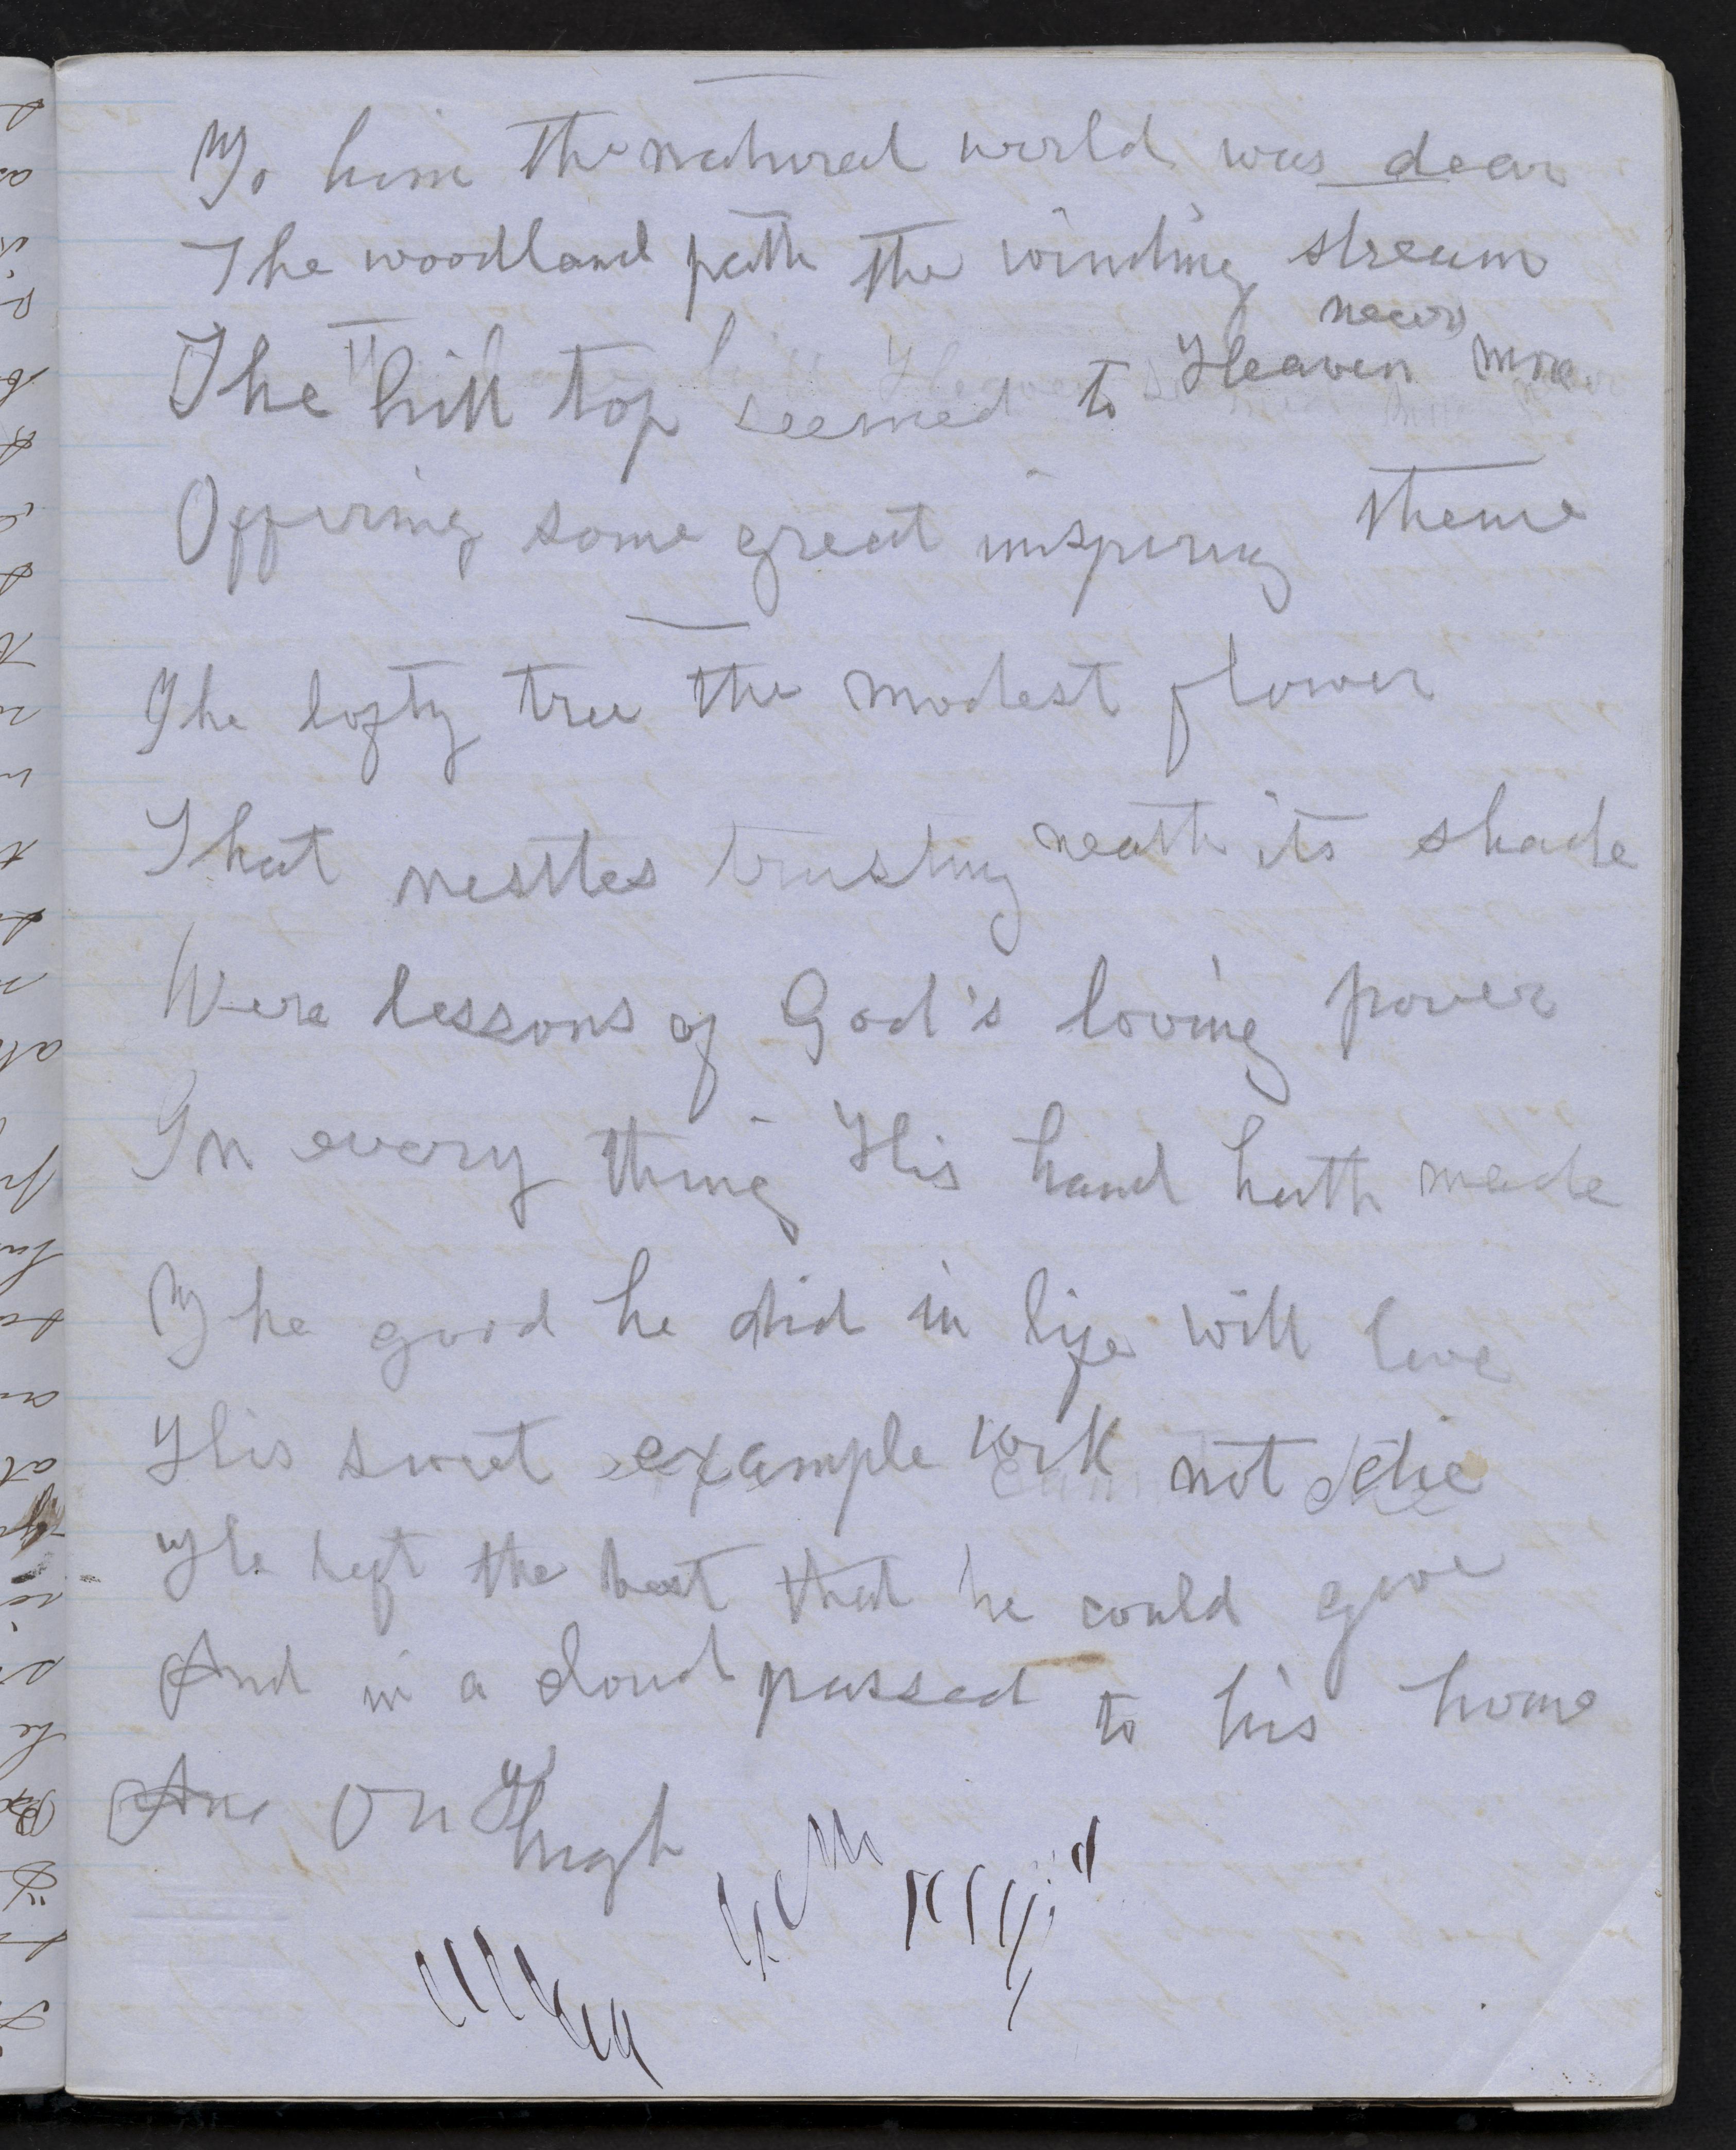 To him the natural world was dear
The woodland path the winding stream
near
The hill top seemed to Heaven more
Offering some great inspiring theme
The lofty tree the modest flower
That nestles trusting neath its shade
Were lessons of God's loving power
In every thing His hand hath made
The good he did in life will live
His sweet example work not die
He left the best that he could give
And in a cloud passed to his home
On high